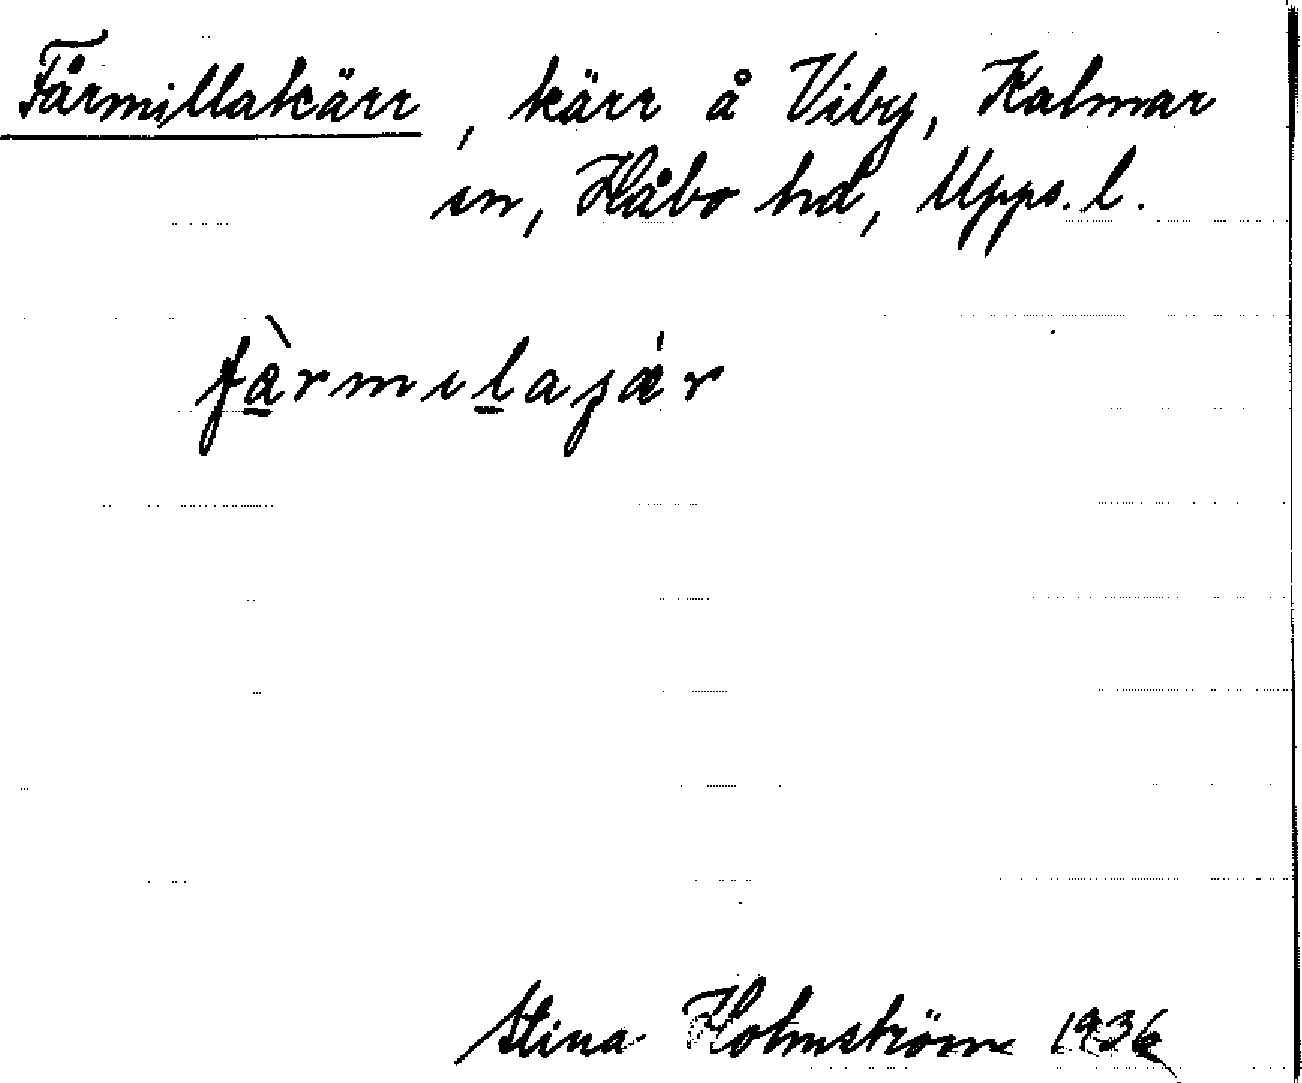 Fårmillakärr, kärr å Viby, Kalmar
sn, Håbo hd, Upps. l.
fàrmilaȷä́r
Stina Holmström 1936